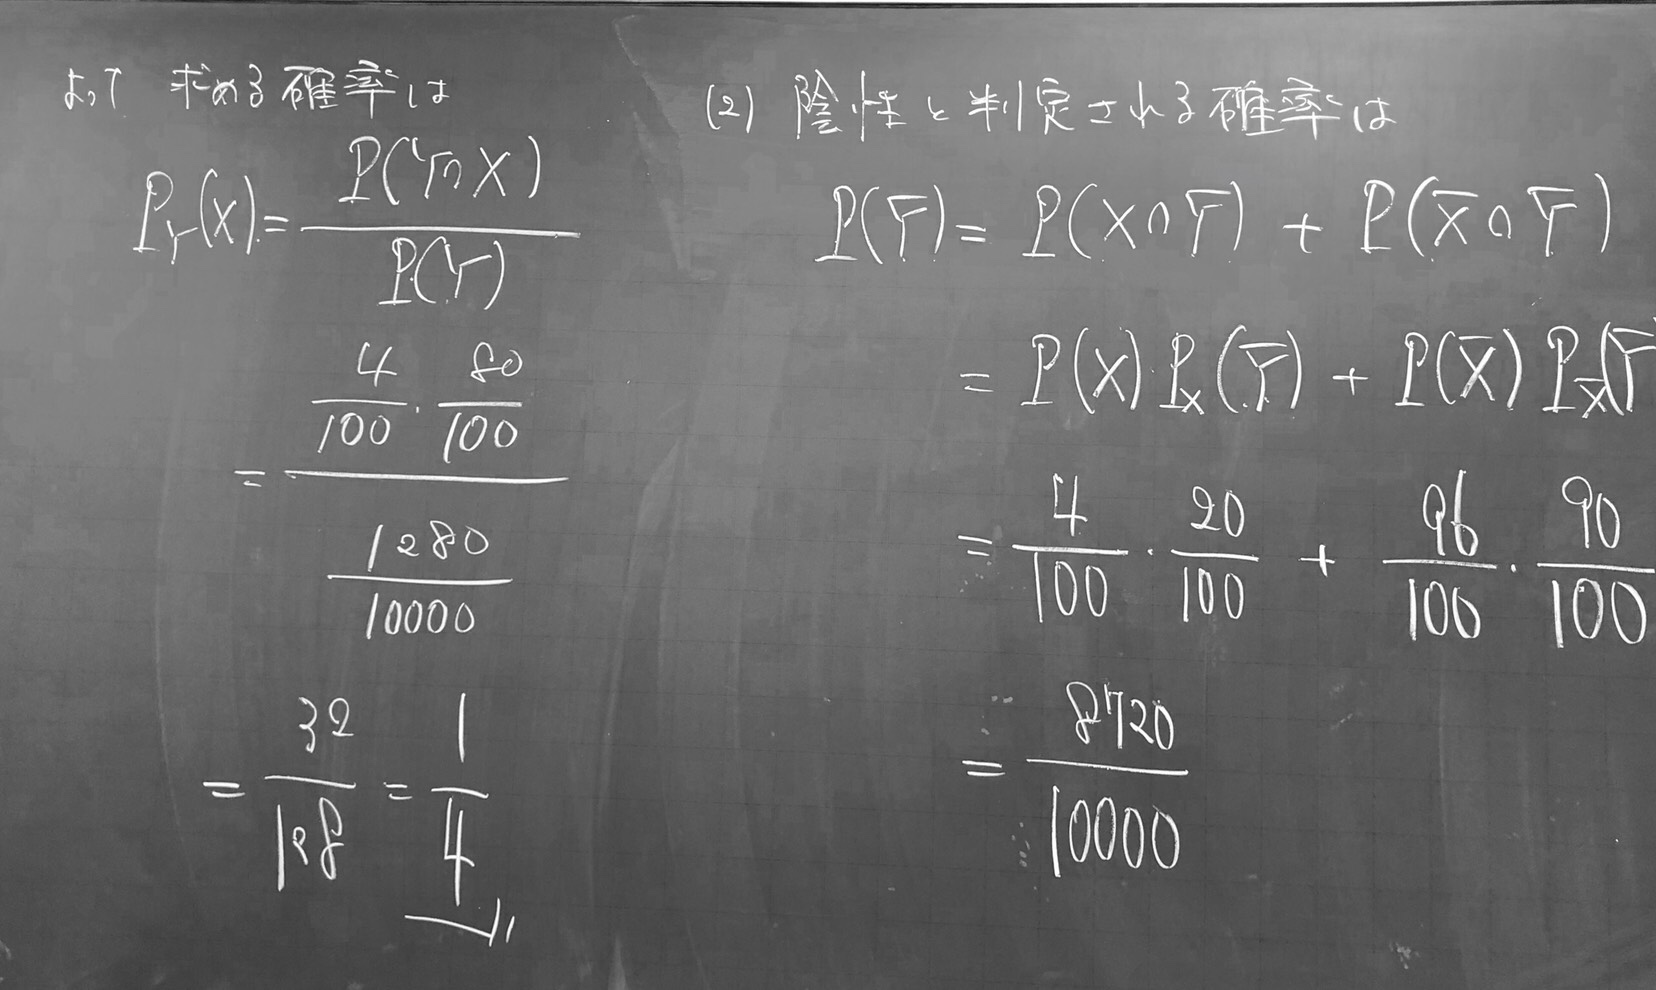 よって 求める確率は
P_Y(X) = P(Y∩X) / P(Y)
= (4/100 · 80/100) / (1280/10000)
= 32/128 = 1/4
(2) 陰性と判定される確率は
P(Y̅) = P(X∩Y̅) + P(X̅∩Y̅)
= P(X) P_X(Y̅) + P(X̅) P_X̅(Y̅
= 4/100 · 20/100 + 96/100 · 90/100
= 8720/10000